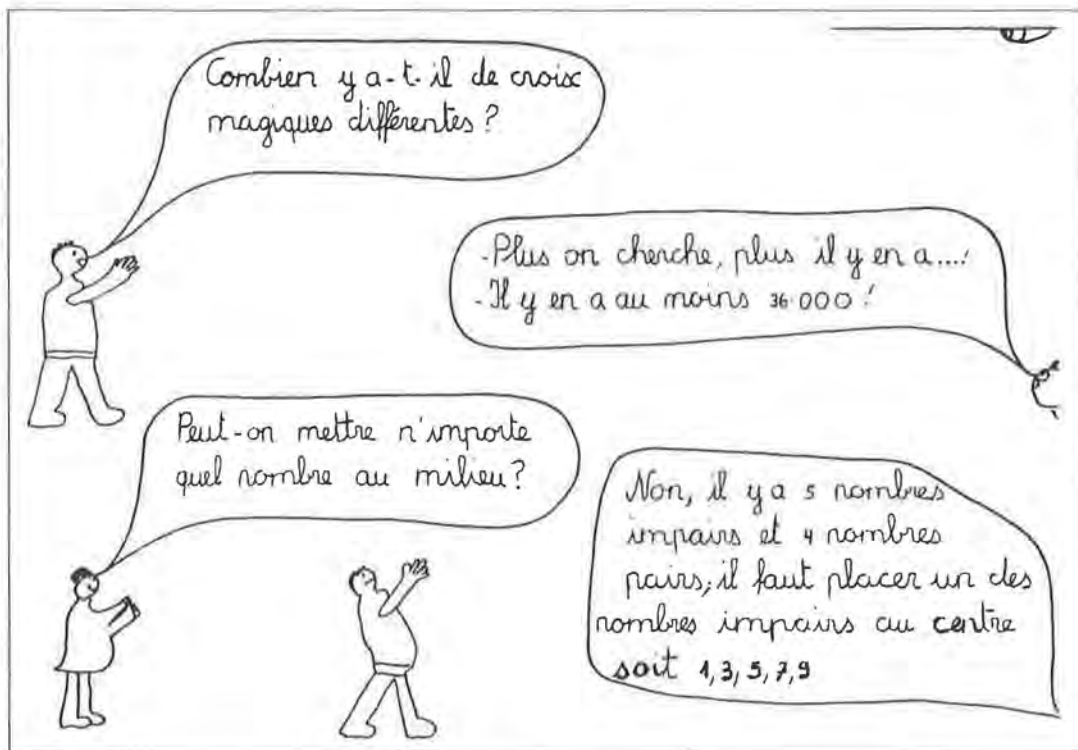 Combien y a-t-il de croix
magiques différentes?
-Plus on cherche, plus il y en a....!
-Il y en a au moins 36.000!
Peut-on mettre n'importe
quel nombre au milieu?
Non, il y a 5 nombres
impairs et 4 nombres
pairs; il faut placer un des
nombres impairs au centre
soit 1,3,5,7,9